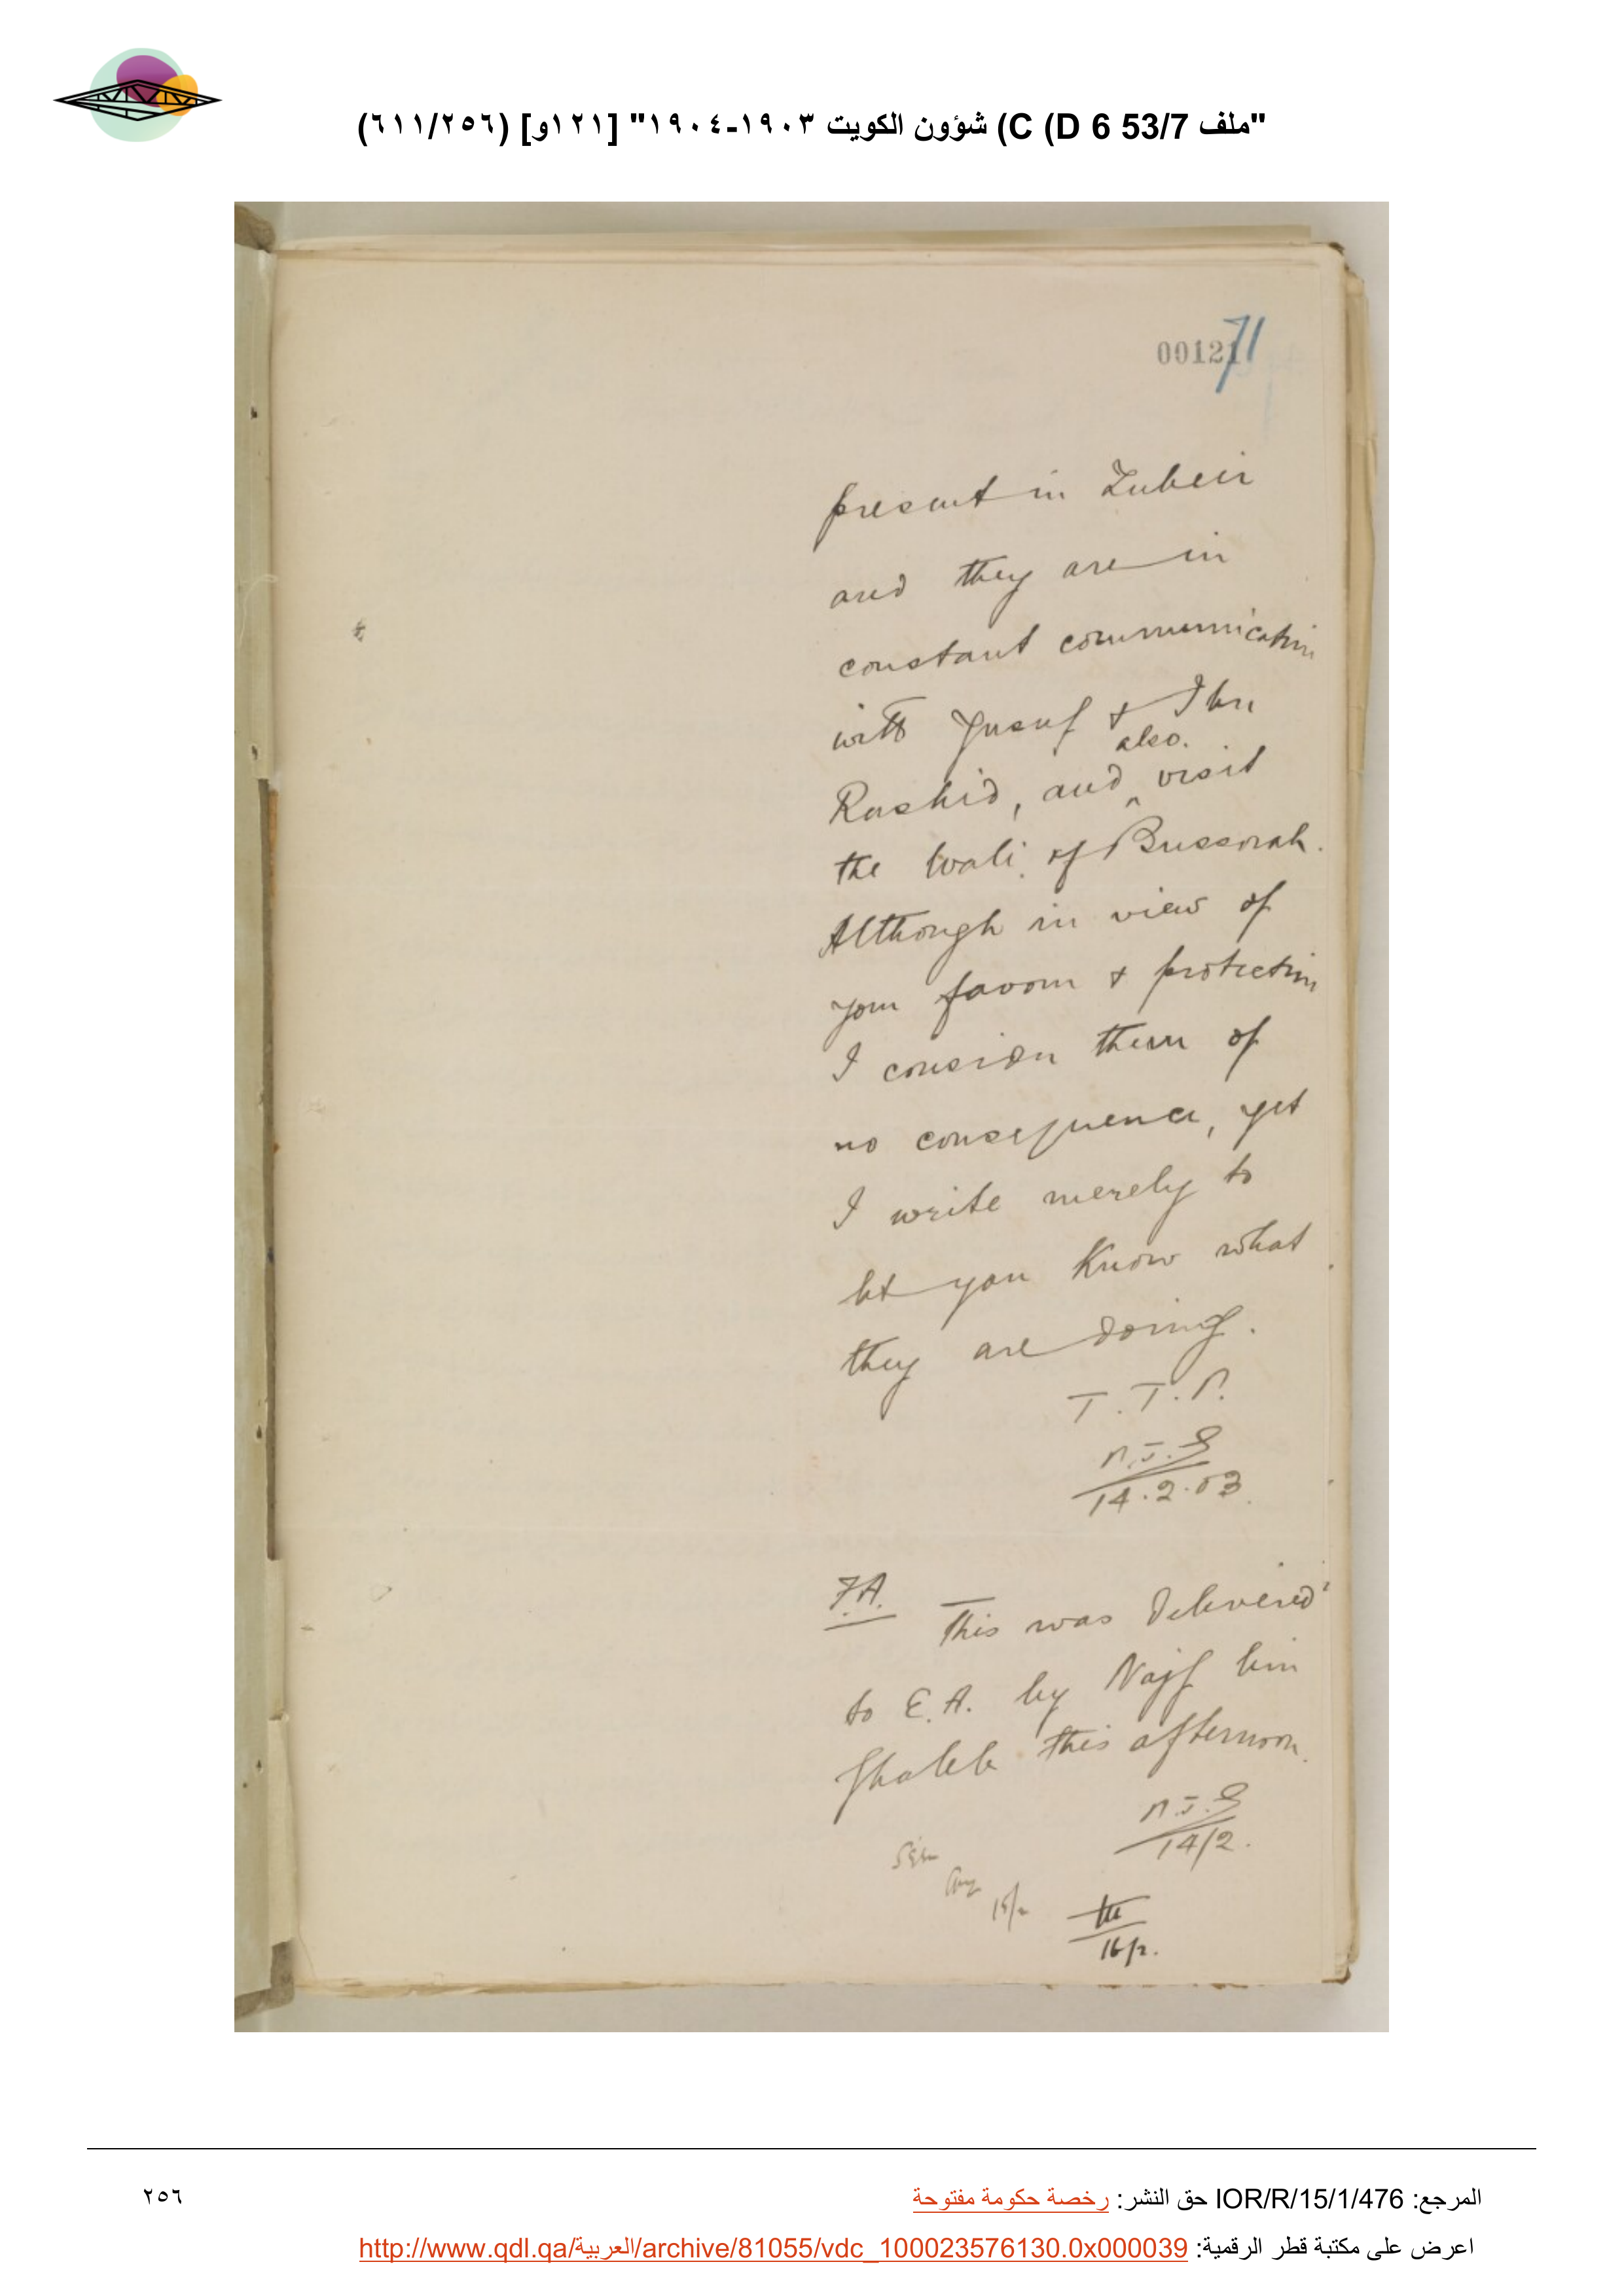 "ملف 53/7 D 6) C) شؤون الكويت ١٩٠٣-١٩٠٤" [١٢١و] (٦١١/٢٥٦)
00121
71
present in Zubeir
and they are in
constant communication
with Yusuf & Ibn
also.
Rashid, and ^ visit
the Wali of Bussorah.
Although in view of
your favour & protection
I consider them of
no consequence, yet
I write merely to
let you know what
they are doing.
T. T. P.
N.J.G
14.2.03
F.A. This was delivered
to E.A. by Najf bin
Ghaleb this afternoon.
N.J.G
14/2.
15/2
16/2.
المرجع: IOR/R/15/1/476 حق النشر: رخصة حكومة مفتوحة
٢٥٦
اعرض على مكتبة قطر الرقمية: http://www.qdl.qa/العربية/archive/81055/vdc_100023576130.0x000039